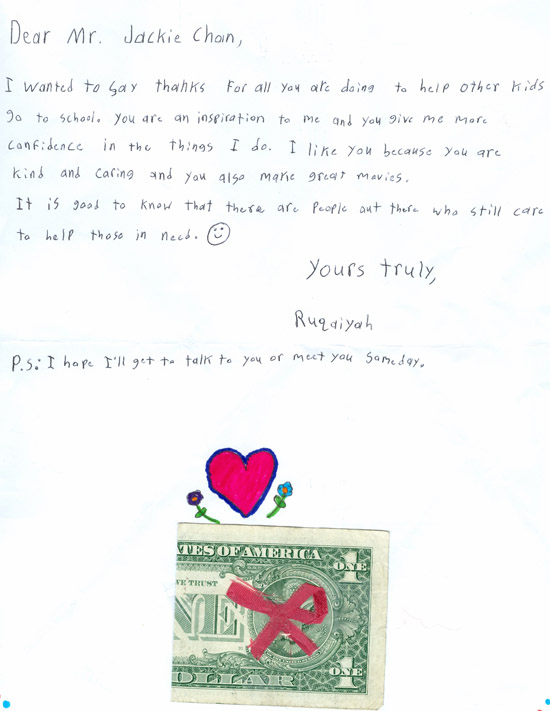 Dear Mr. Jackie Chan,
I wanted to say thanks for all you are doing to help other kids
go to school. you are an inspiration to me and you give me more
confidence in the things I do. I like you because you are
kind and caring and you also make great movies.
It is good to know that there are people out there who still care
to help those in need.
Yours truly,
Ruqaiyah
P.S.: I hope I'll get to talk to you or meet you someday.
ATES OF AMERICA
1
ONE
WE TRUST
NE
ONE
1
DOLLAR